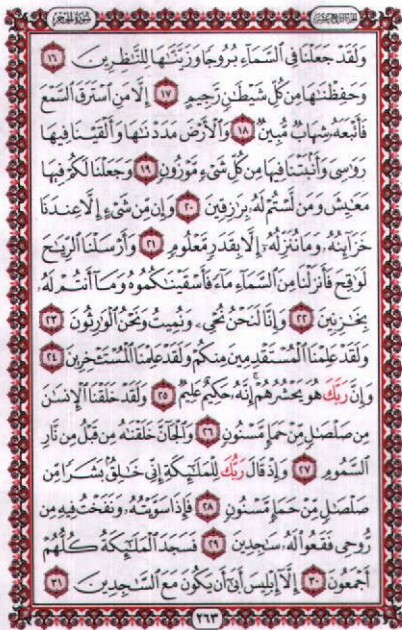 الجزء الرابع عشر سورة الحجر
ولقد جعلنا في السماء بروجا وزيناها للناظرين ١٦
وحفظناها من كل شيطان رجيم ١٧ إلا من استرق السمع
فأتبعه شهاب مبين ١٨ والأرض مددناها وألقينا فيها
رواسي وأنبتنا فيها من كل شيء موزون ١٩ وجعلنا لكم فيها
معايش ومن لستم له برازقين ٢٠ وإن من شيء إلا عندنا
خزائنه وما ننزله إلا بقدر معلوم ٢١ وأرسلنا الرياح
لواقح فأنزلنا من السماء ماء فأسقيناكموه وما أنتم له
بخازنين ٢٢ وإنا لنحن نحي ونميت ونحن الوارثون ٢٣
ولقد علمنا المستقدمين منكم ولقد علمنا المستخرين ٢٤
وإن ربك هو يحشرهم إنه حكيم عليم ٢٥ ولقد خلقنا الإنسان
من صلصال من حما مسنون ٢٦ والجان خلقناه من قبل من نار
السموم ٢٧ وإذ قال ربك للملائكة إني خالق بشرا من
صلصال من حما مسنون ٢٨ فإذا سويته ونفخت فيه من
روحي فقعوا له ساجدين ٢٩ فسجد الملائكة كلهم
أجمعون ٣٠ إلا إبليس أبى أن يكون مع الساجدين ٣١
٢٦٣